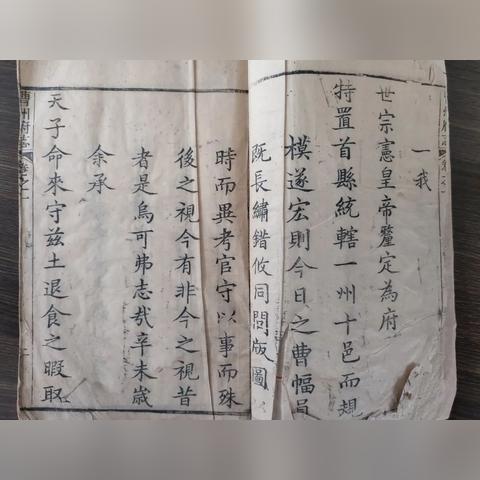 一我
世宗憲皇帝釐定為府
特置首縣統轄一州十邑而規
模遂宏則今日之曹幅員
既長繡錯攸同問版圖
時而異考官守以事而殊
後之視今有非今之視昔
者是烏可弗志哉辛未歲
余承
天子命來守茲土退食之暇取
曹州府志 卷之一